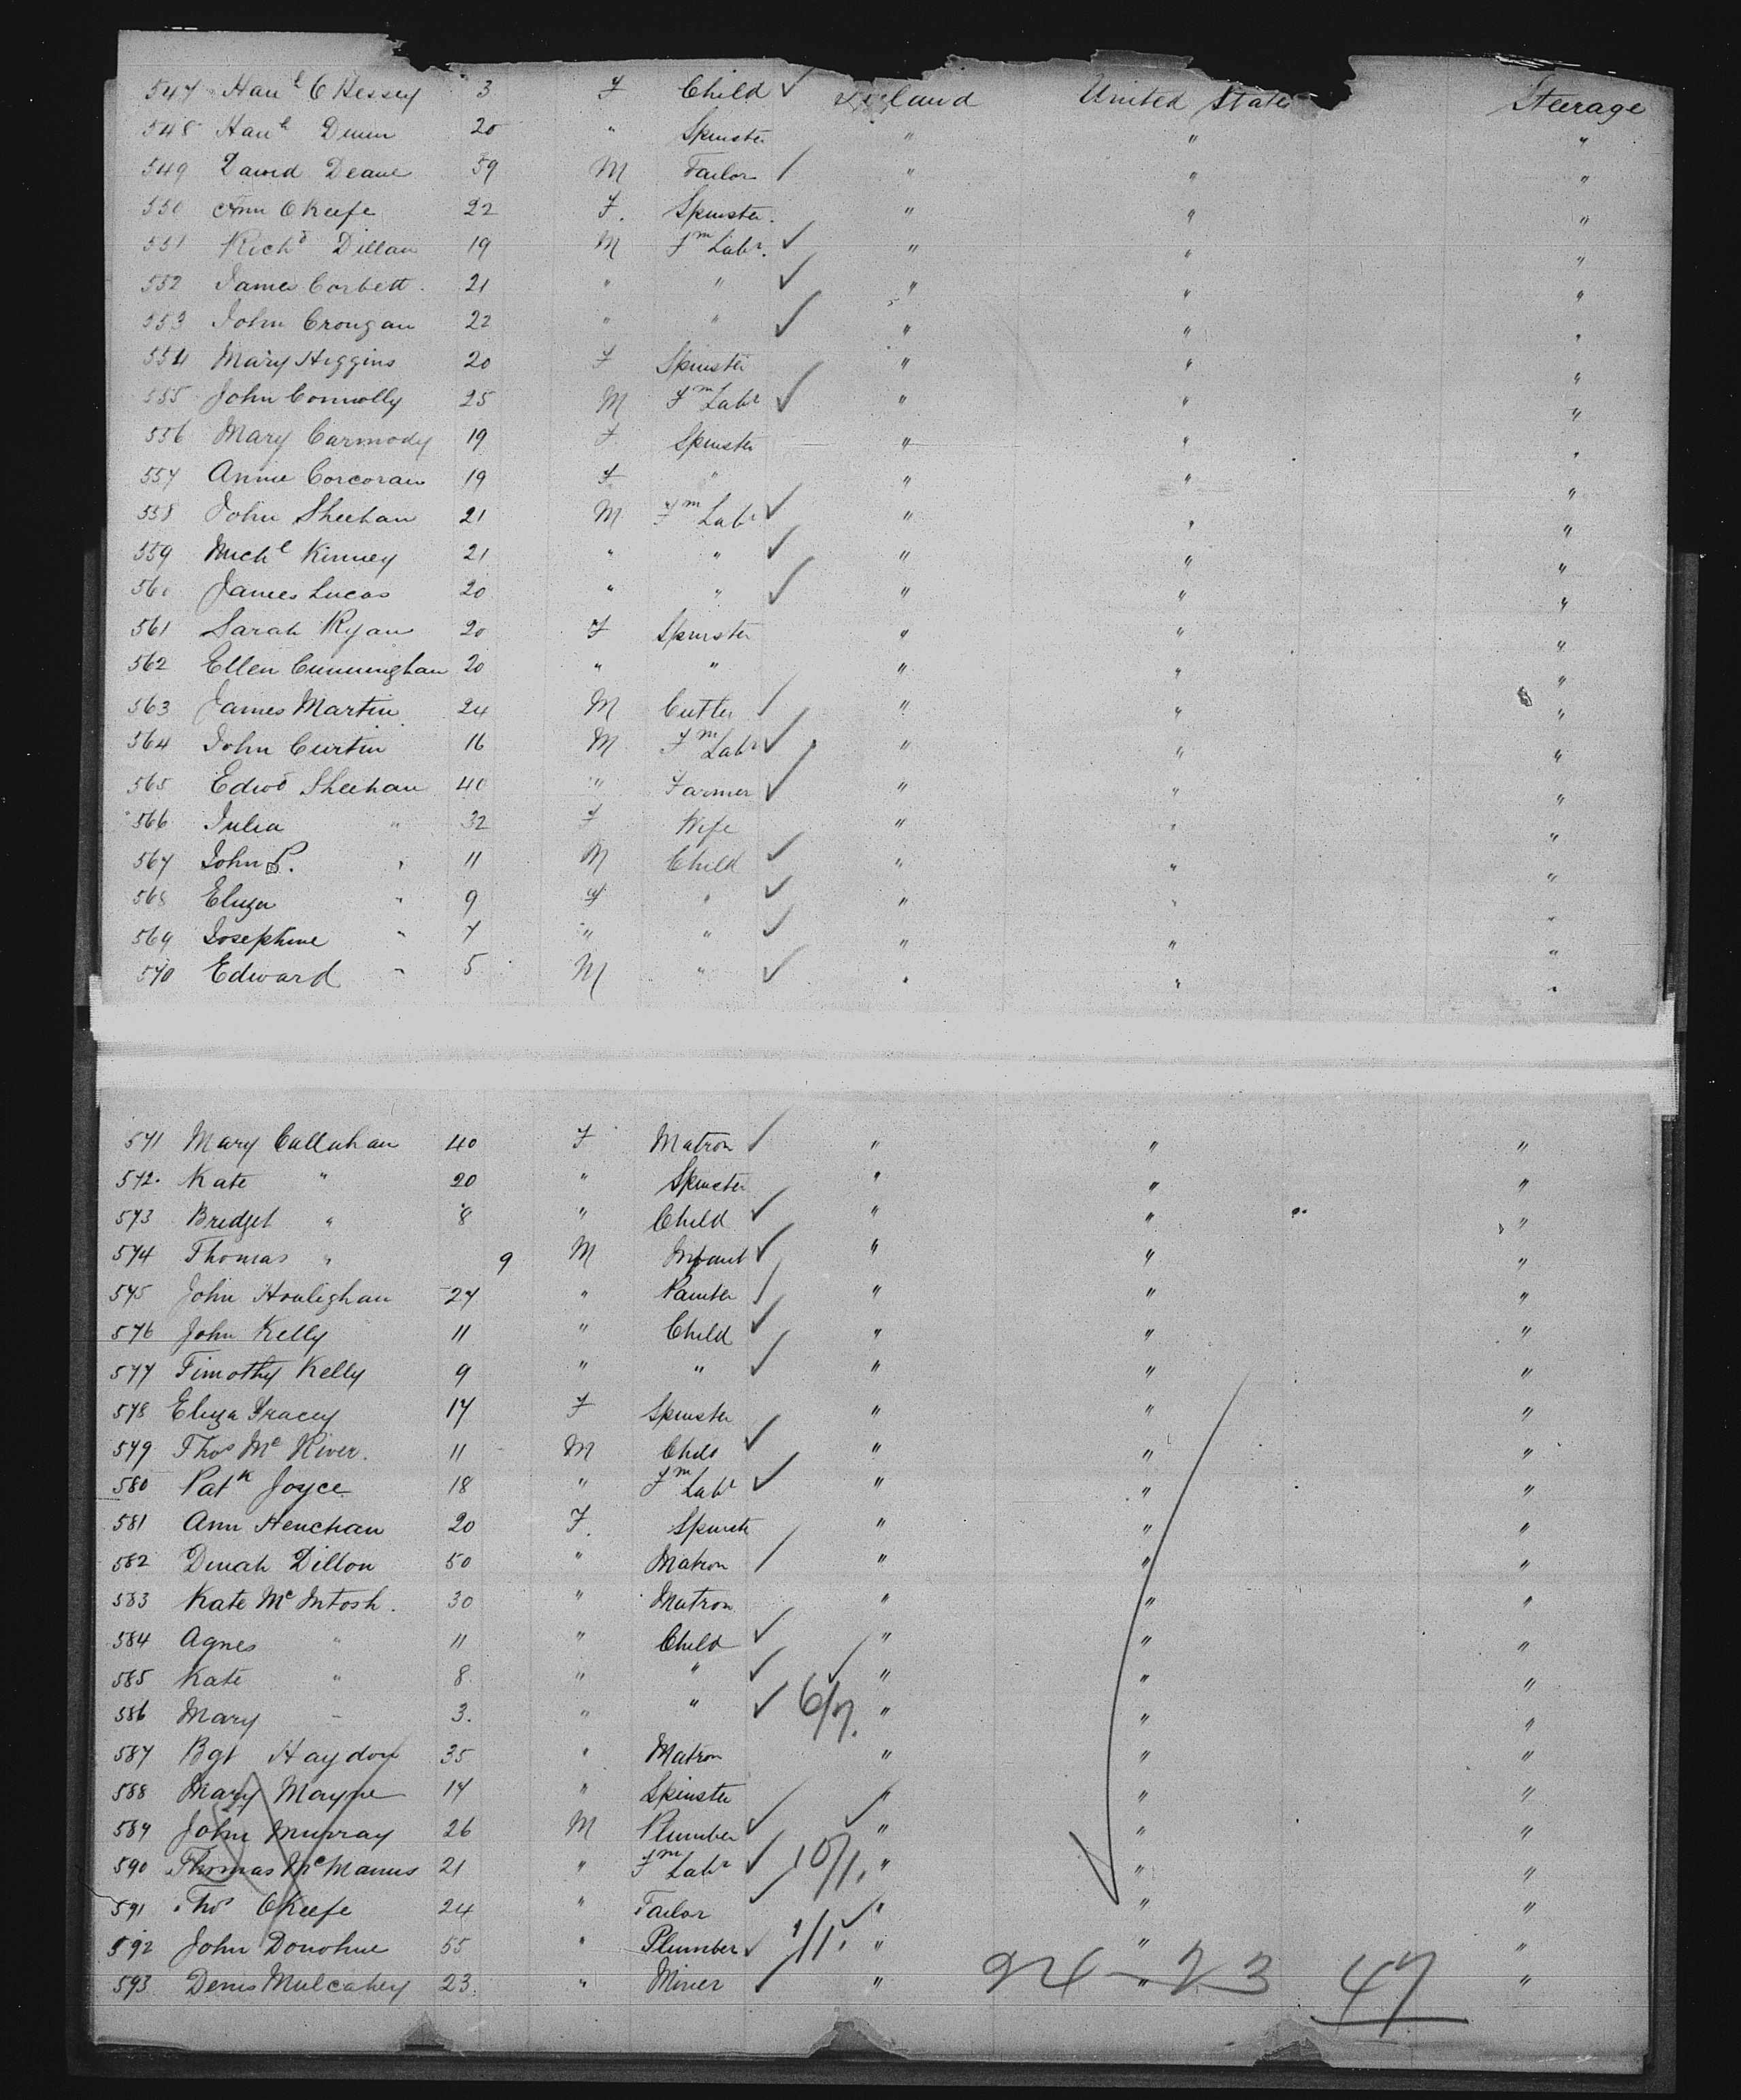 547 Han^l O Hessey 3 F Child ✓ Ireland United States Steerage
548 Han^h Dunn 20 " Spinster " " "
549 David Deane 59 M Tailor / " " "
550 Ann O Keefe 22 F. Spinster. " " "
551 Rich^d Dillan 19 M F^m Lab^r. ✓ " " "
552 James Corbett. 21 " " ✓ " " "
553 John Crongan 22 " " ✓ " " "
554 Mary Higgins 20 F Spinster " " "
555 John Connolly 25 M F^m Lab^r ✓ " " "
556 Mary Carmody 19 F Spinster " " "
557 Annie Corcoran 19 F " " " "
558 John Sheehan 21 M F^m Lab^r ✓ " " "
559 Mich^l Kinney 21 " " ✓ " " "
560 James Lucas 20 " " ✓ " " "
561 Sarah Ryan 20 F Spinster " " "
562 Ellen Cunningham 20 " " " " "
563 James Martin 24 M Cutler / " " "
564 John Curtin 16 M F^m Lab^r ✓ " " "
565 Edw^d Sheehan 40 " Farmer ✓ " " "
566 Julia " 32 F Wife " " "
567 John P. " 11 M Child ✓ " " "
568 Eliza " 9 F " ✓ " " "
569 Josephine " 7 " " ✓ " " "
570 Edward " 5 M " ✓ " " "
571 Mary Callahan 40 F Matron / " " "
572. Kate " 20 " Spinster " " "
573 Bridget " 8 " Child ✓ " " "
574 Thomas " 9 M Infant ✓ " " "
575 John Houlighan 27 " Painter / " " "
576 John Kelly 11 " Child ✓ " " "
577 Timothy Kelly 9 " " ✓ " " "
578 Eliza Tracey 17 F Spinster " " "
579 Tho^s M^c Kiver. 11 M Child ✓ " " "
580 Pat^k Joyce 18 " F^m Lab^r ✓ " " "
581 Ann Henehan 20 F. Spinste " " "
582 Dinah Dillon 50 " Matron / " " "
583 Kate M^c Intosh. 30 " Matron " " "
584 Agnes " 11 " Child ✓ " " "
585 Kate " 8 " " ✓ ✓ " " "
586 Mary " 3. " " ✓ 6/7. " " "
587 Bgt Haydon 35 " Matron " " "
588 Mary Mayne 17 " Spinster " " "
589 John Murray 26 M Plumber ✓ ✓ " " "
590 Thomas M^c Manus 21 " F^m Lab^r ✓ 10/1. " " "
591 Tho^s O Keefe 24 " Tailor ✓ ✓ " " "
592 John Donohue 55 " Plumber ✓ 1/1. " " "
593 Denis Mulcahey 23. " Miner ✓ " " "
24 - 23 47